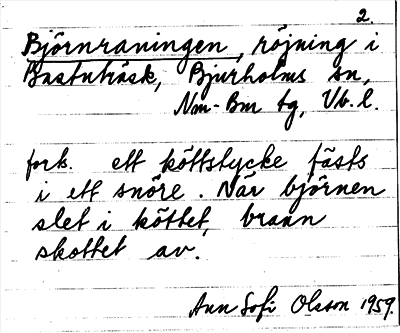 2
Björnraningen, röjning i
Bastuträsk, Bjurholms sn,
Nm-Bm tg, Vb. l.
fork. ett köttstycke fästs
i ett snöre. När björnen
slet i köttet, brann
skottet av.
Ann Sofi Olsson 1959.